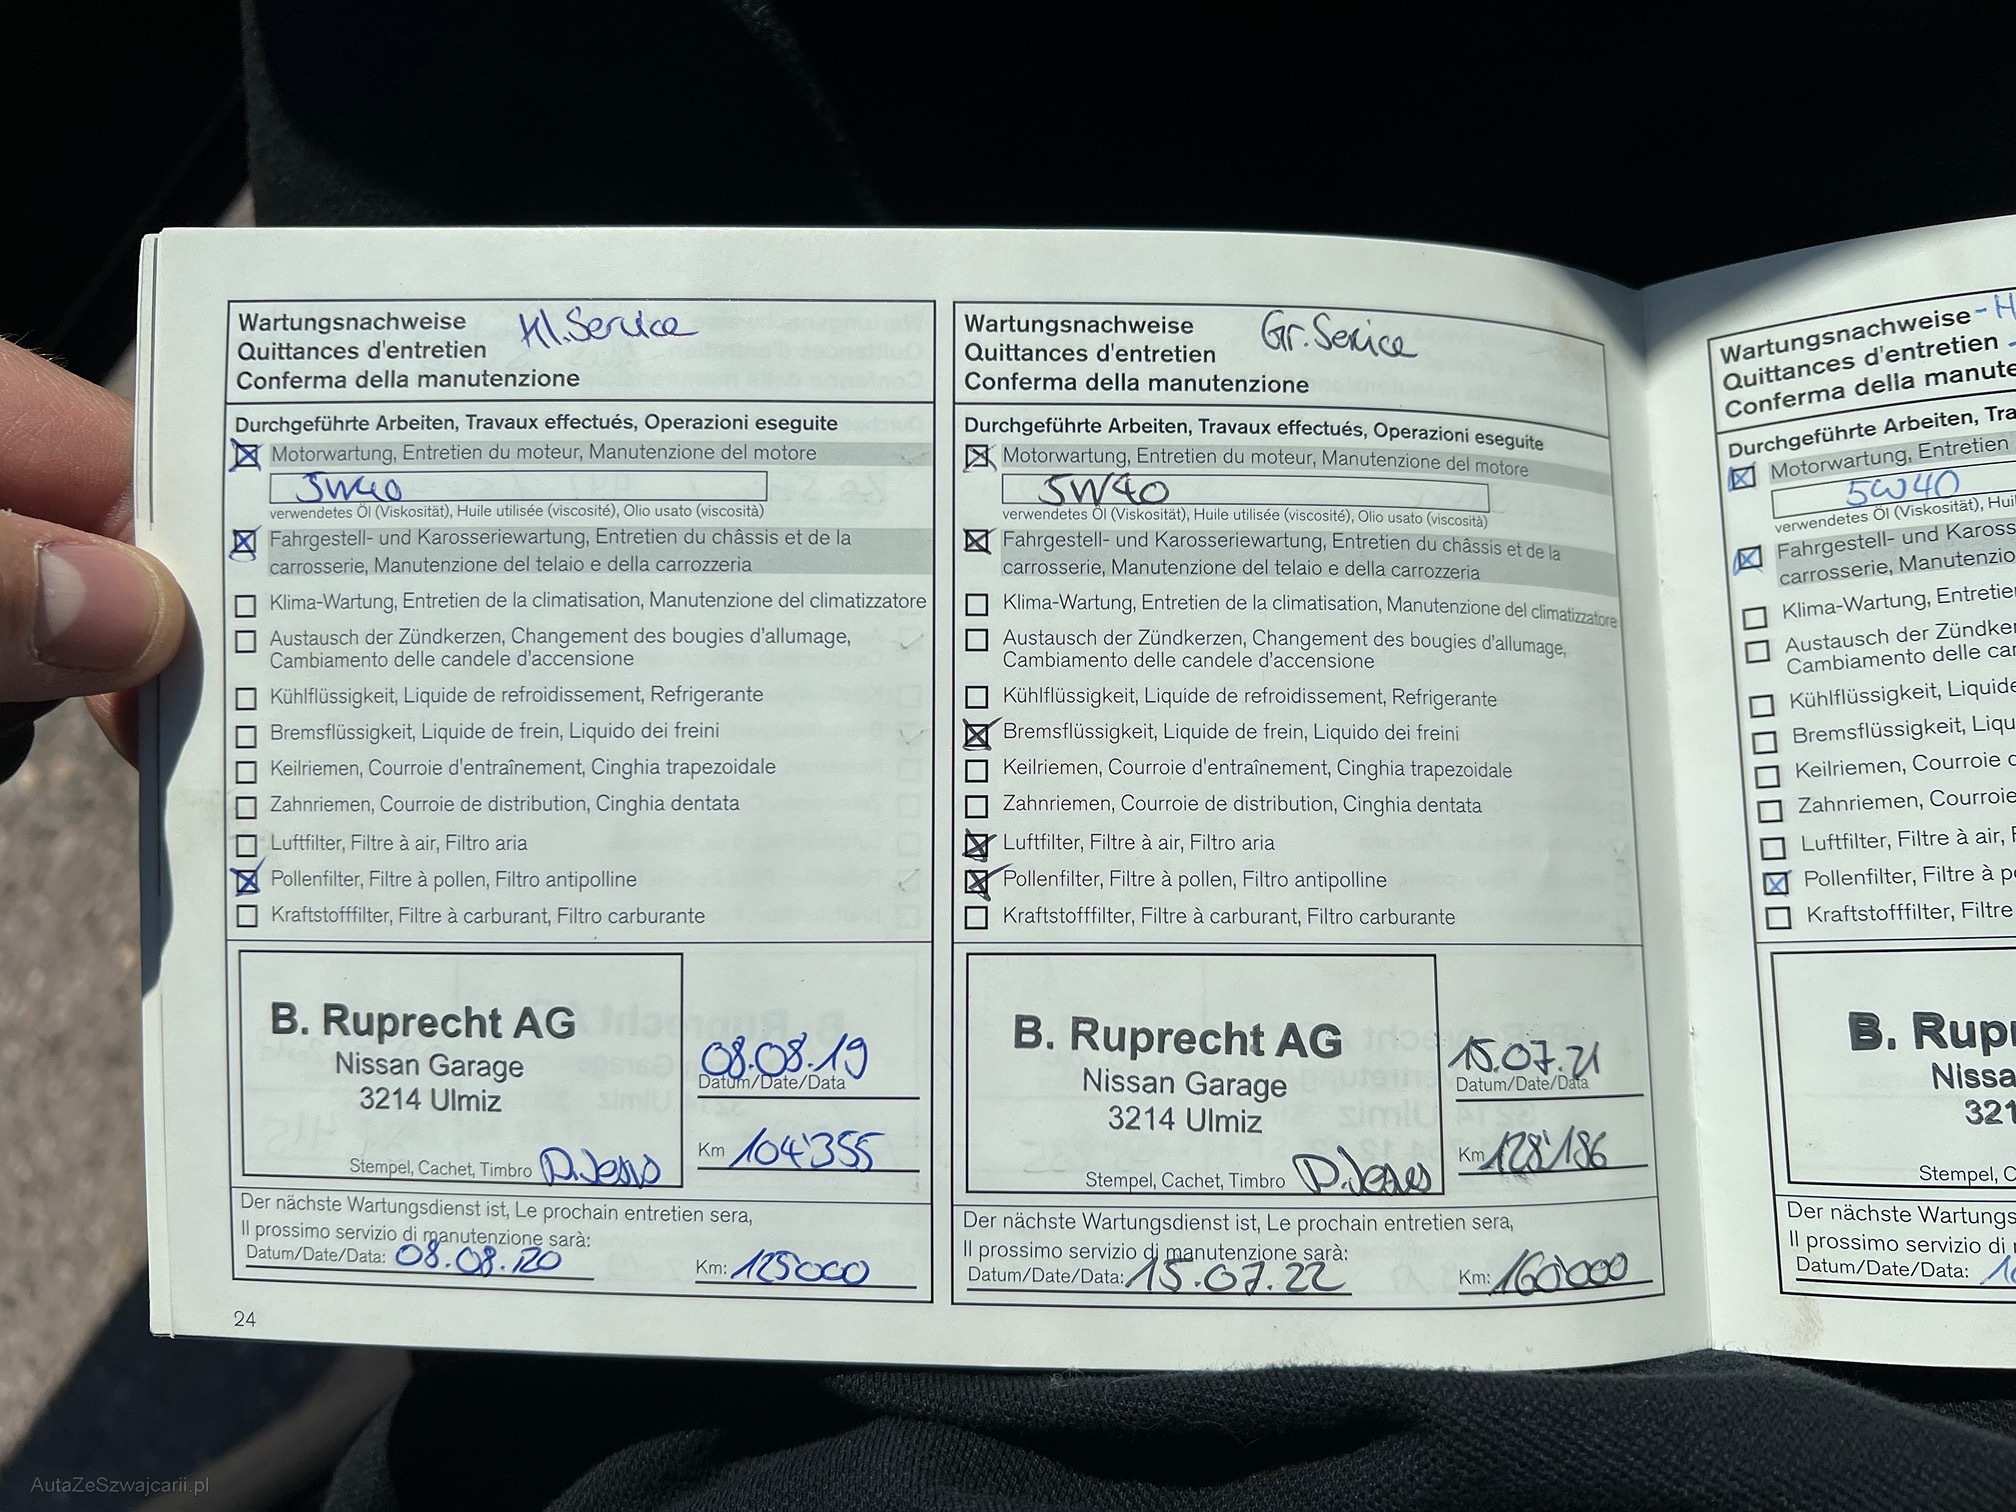 Wartungsnachweise Kl.Service
Quittances d'entretien
Conferma della manutenzione
Durchgeführte Arbeiten, Travaux effectués, Operazioni eseguite
Motorwartung, Entretien du moteur, Manutenzione del motore
5W40
verwendetes Öl (Viskosität), Huile utilisée (viscosité), Olio usato (viscosità)
Fahrgestell- und Karosseriewartung, Entretien du châssis et de la
carrosserie, Manutenzione del telaio e della carrozzeria
Klima-Wartung, Entretien de la climatisation, Manutenzione del climatizzatore
Austausch der Zündkerzen, Changement des bougies d'allumage,
Cambiamento delle candele d'accensione
Kühlflüssigkeit, Liquide de refroidissement, Refrigerante
Bremsflüssigkeit, Liquide de frein, Liquido dei freini
Keilriemen, Courroie d'entraînement, Cinghia trapezoidale
Zahnriemen, Courroie de distribution, Cinghia dentata
Luftfilter, Filtre à air, Filtro aria
Pollenfilter, Filtre à pollen, Filtro antipolline
Kraftstofffilter, Filtre à carburant, Filtro carburante
B. Ruprecht AG
Nissan Garage
3214 Ulmiz
08.08.19
Datum/Date/Data
Km 104'355
Stempel, Cachet, Timbro D.Jesus
Der nächste Wartungsdienst ist, Le prochain entretien sera,
Il prossimo servizio di manutenzione sarà:
Datum/Date/Data: 08.08.20 Km: 125000
24
Wartungsnachweise Gr.Service
Quittances d'entretien
Conferma della manutenzione
Durchgeführte Arbeiten, Travaux effectués, Operazioni eseguite
Motorwartung, Entretien du moteur, Manutenzione del motore
5W40
verwendetes Öl (Viskosität), Huile utilisée (viscosité), Olio usato (viscosità)
Fahrgestell- und Karosseriewartung, Entretien du châssis et de la
carrosserie, Manutenzione del telaio e della carrozzeria
Klima-Wartung, Entretien de la climatisation, Manutenzione del climatizzatore
Austausch der Zündkerzen, Changement des bougies d'allumage,
Cambiamento delle candele d'accensione
Kühlflüssigkeit, Liquide de refroidissement, Refrigerante
Bremsflüssigkeit, Liquide de frein, Liquido dei freini
Keilriemen, Courroie d'entraînement, Cinghia trapezoidale
Zahnriemen, Courroie de distribution, Cinghia dentata
Luftfilter, Filtre à air, Filtro aria
Pollenfilter, Filtre à pollen, Filtro antipolline
Kraftstofffilter, Filtre à carburant, Filtro carburante
B. Ruprecht AG
Nissan Garage
3214 Ulmiz
15.07.21
Datum/Date/Data
Km 128'186
Stempel, Cachet, Timbro D.Jesus
Der nächste Wartungsdienst ist, Le prochain entretien sera,
Il prossimo servizio di manutenzione sarà:
Datum/Date/Data: 15.07.22 Km: 160'000
Wartungsnachweise - H
Quittances d'entretien -
Conferma della manute
Durchgeführte Arbeiten, Tra
Motorwartung, Entretien
5W40
verwendetes Öl (Viskosität), Hui
Fahrgestell- und Kaross
carrosserie, Manutenzio
Klima-Wartung, Entretie
Austausch der Zündke
Cambiamento delle ca
Kühlflüssigkeit, Liquide
Bremsflüssigkeit, Liqu
Keilriemen, Courroie d
Zahnriemen, Courroie
Luftfilter, Filtre à air, F
Pollenfilter, Filtre à p
Kraftstofffilter, Filtre
B. Rup
Nissa
321
Stempel, C
Der nächste Wartungs
Il prossimo servizio di
Datum/Date/Data:
AutaZeSzwajcarii.pl